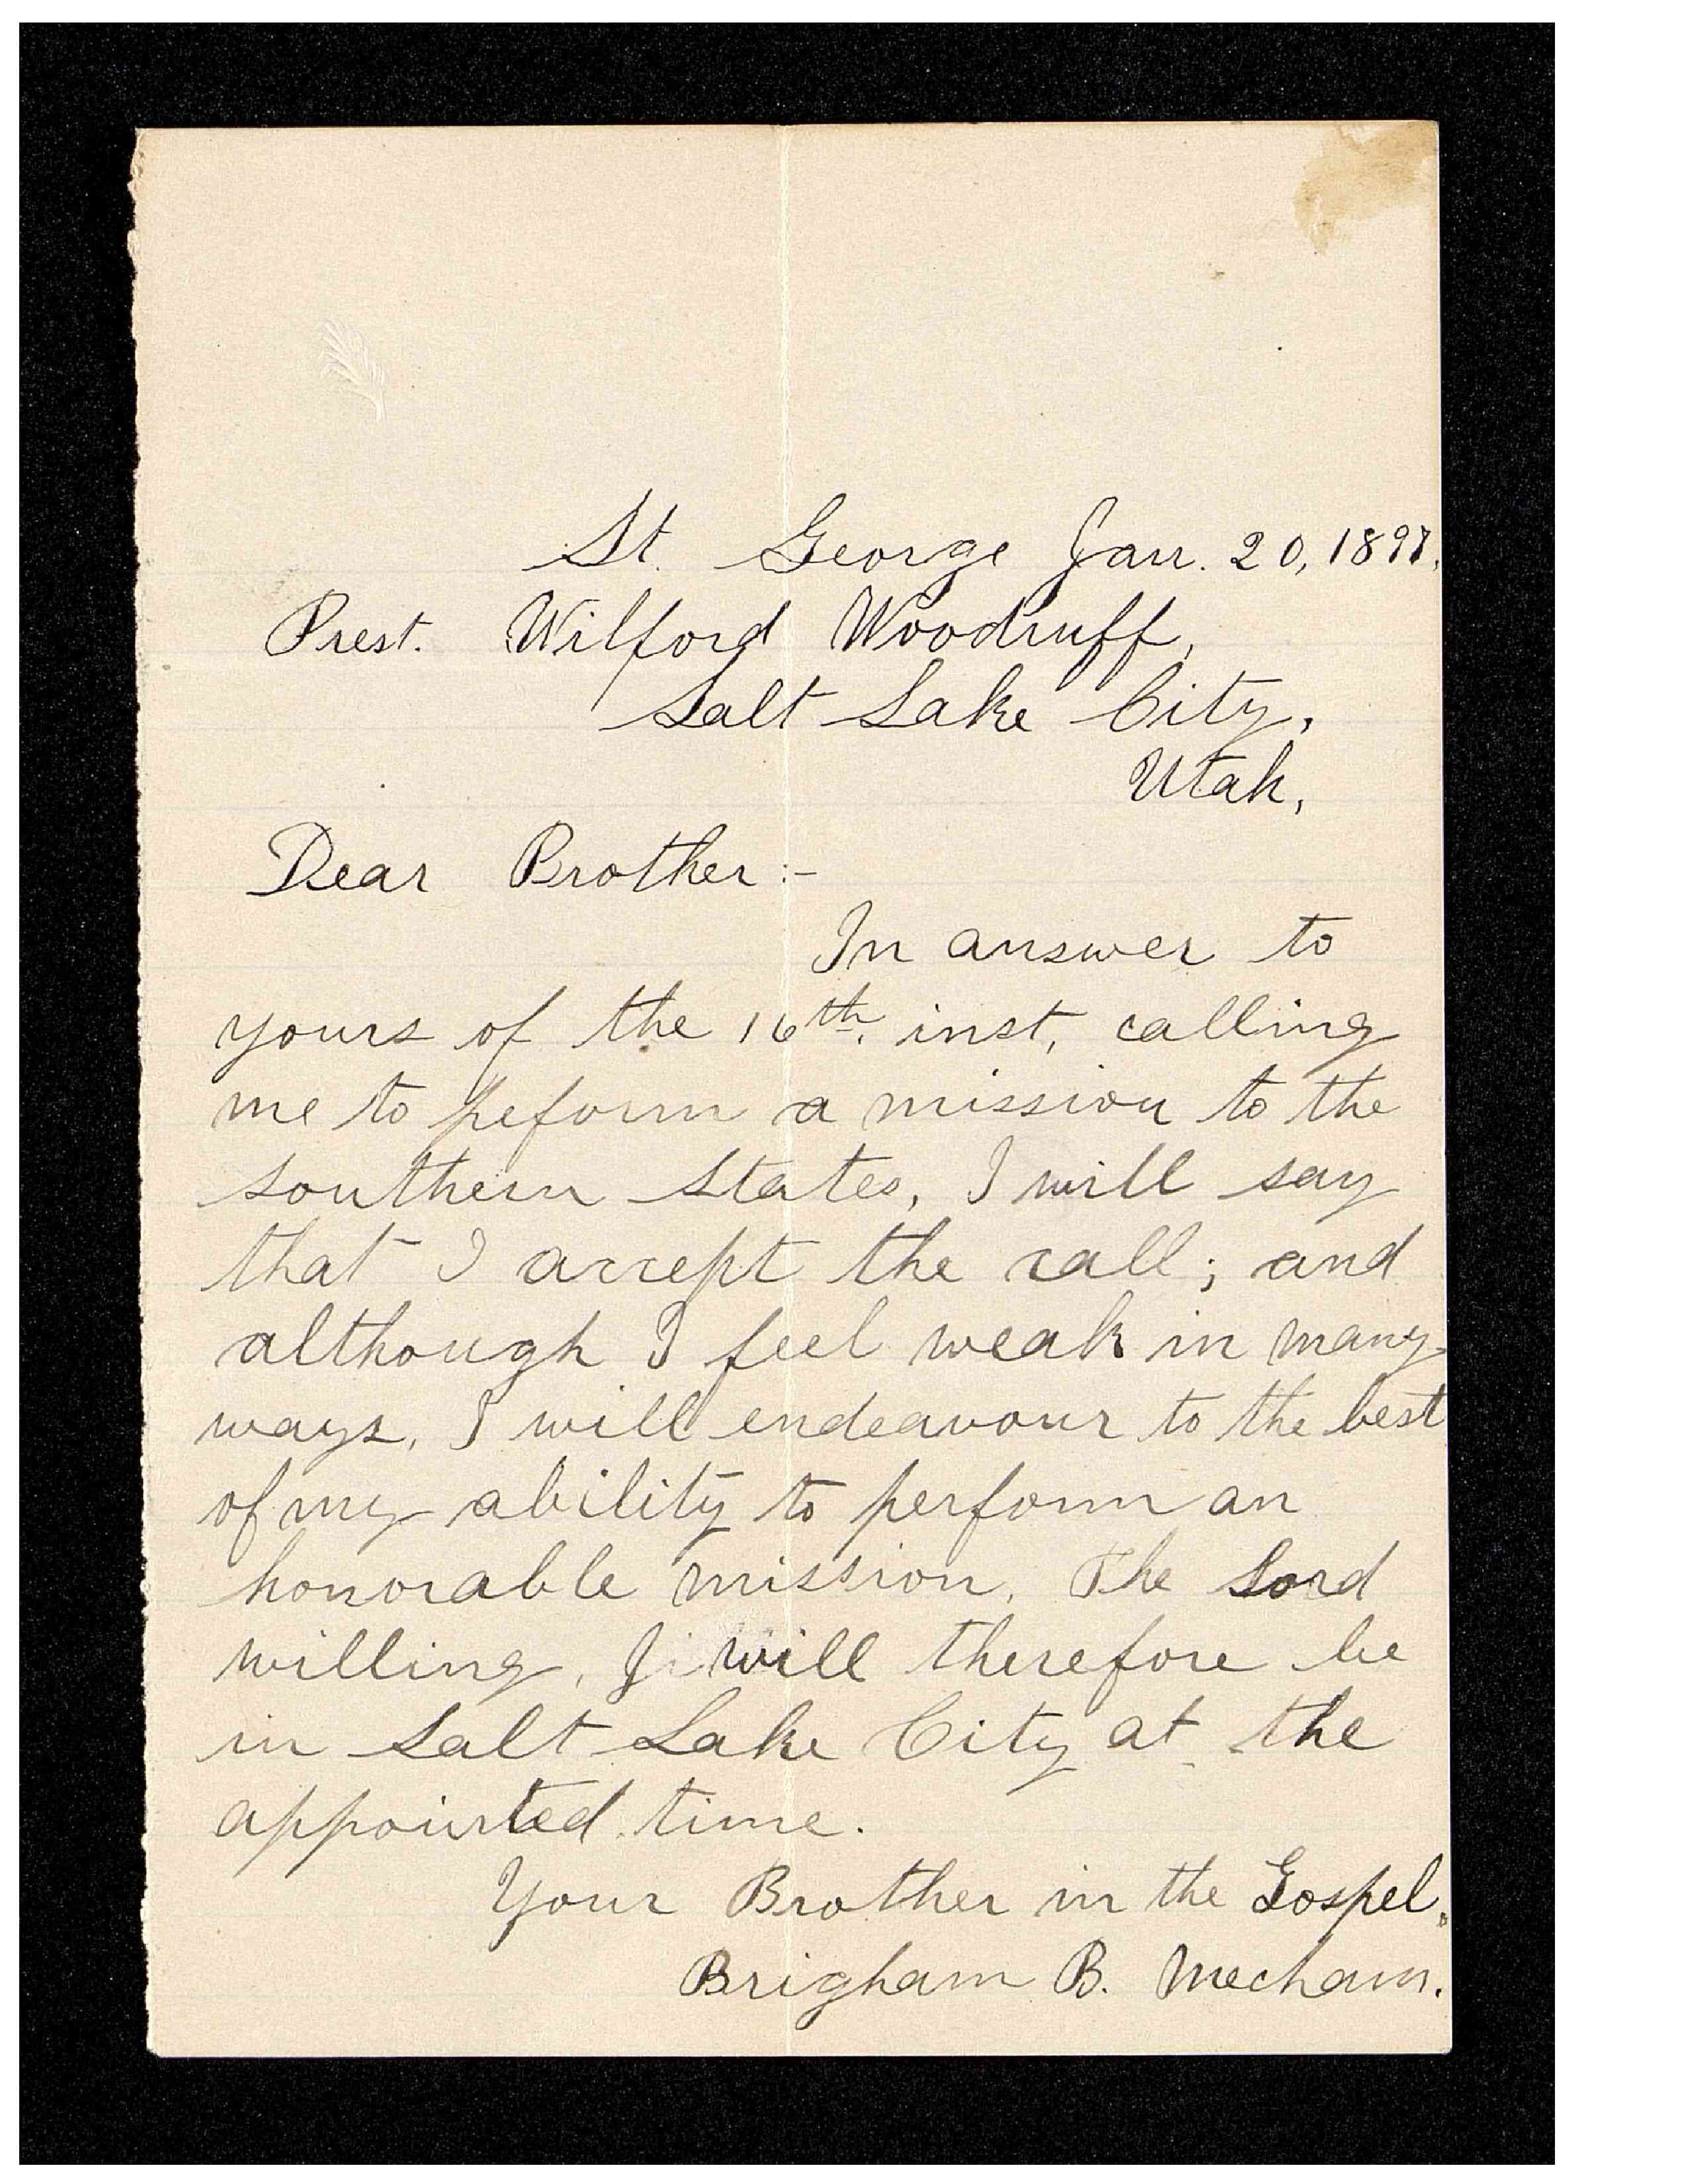 St. George Jan. 20, 1897.
Prest. Wilford Woodruff,
Salt Lake City,
Utah,
Dear Brother:-
In answer to
yours of the 16th. inst, calling
me to peform a mission to the
southern States, I will say
that I accept the call; and
although I feel weak in many
ways, I will endeavour to the best
of my ability to perform an
honorable mission. The Lord
willing, I will therefore be
in Salt Lake City at the
appointed time.
Your Brother in the Gospel.
Brigham B. Mecham.